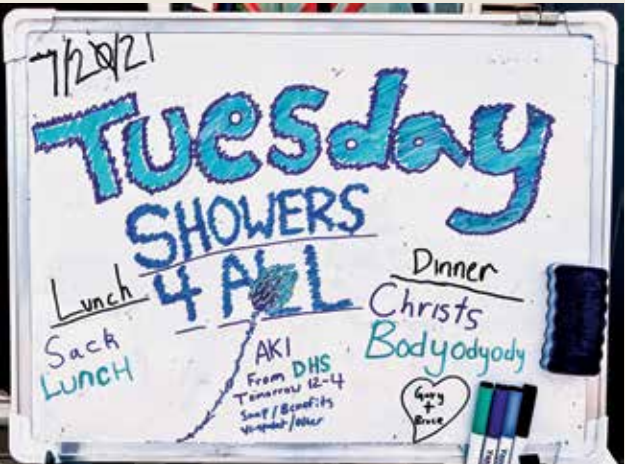 7/20/21
Tuesday
SHOWERS
4 ALL
Lunch
Sack
LUNCH
Dinner
Christs
Bodyodyody
AKI
From DHS
Tomorrow 12-4
Snap/Benefits
Gary
+
Bruce